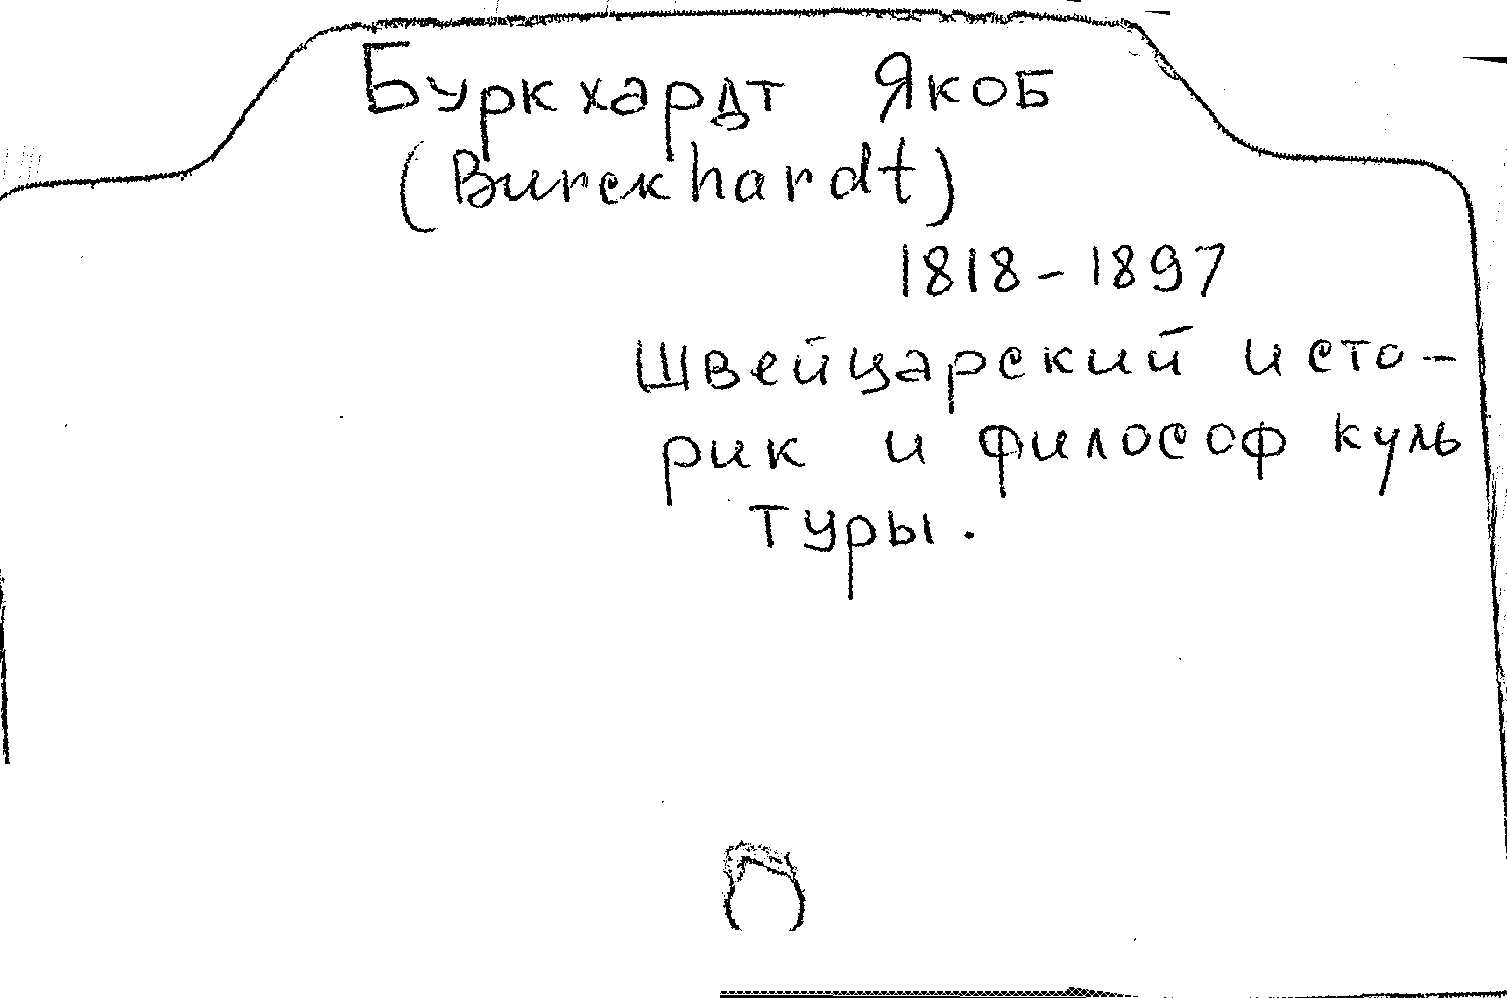 Буркхардт Якоб
(Burckhardt)
1818-1897
Швейцарский исто-
рик и философ куль
туры.